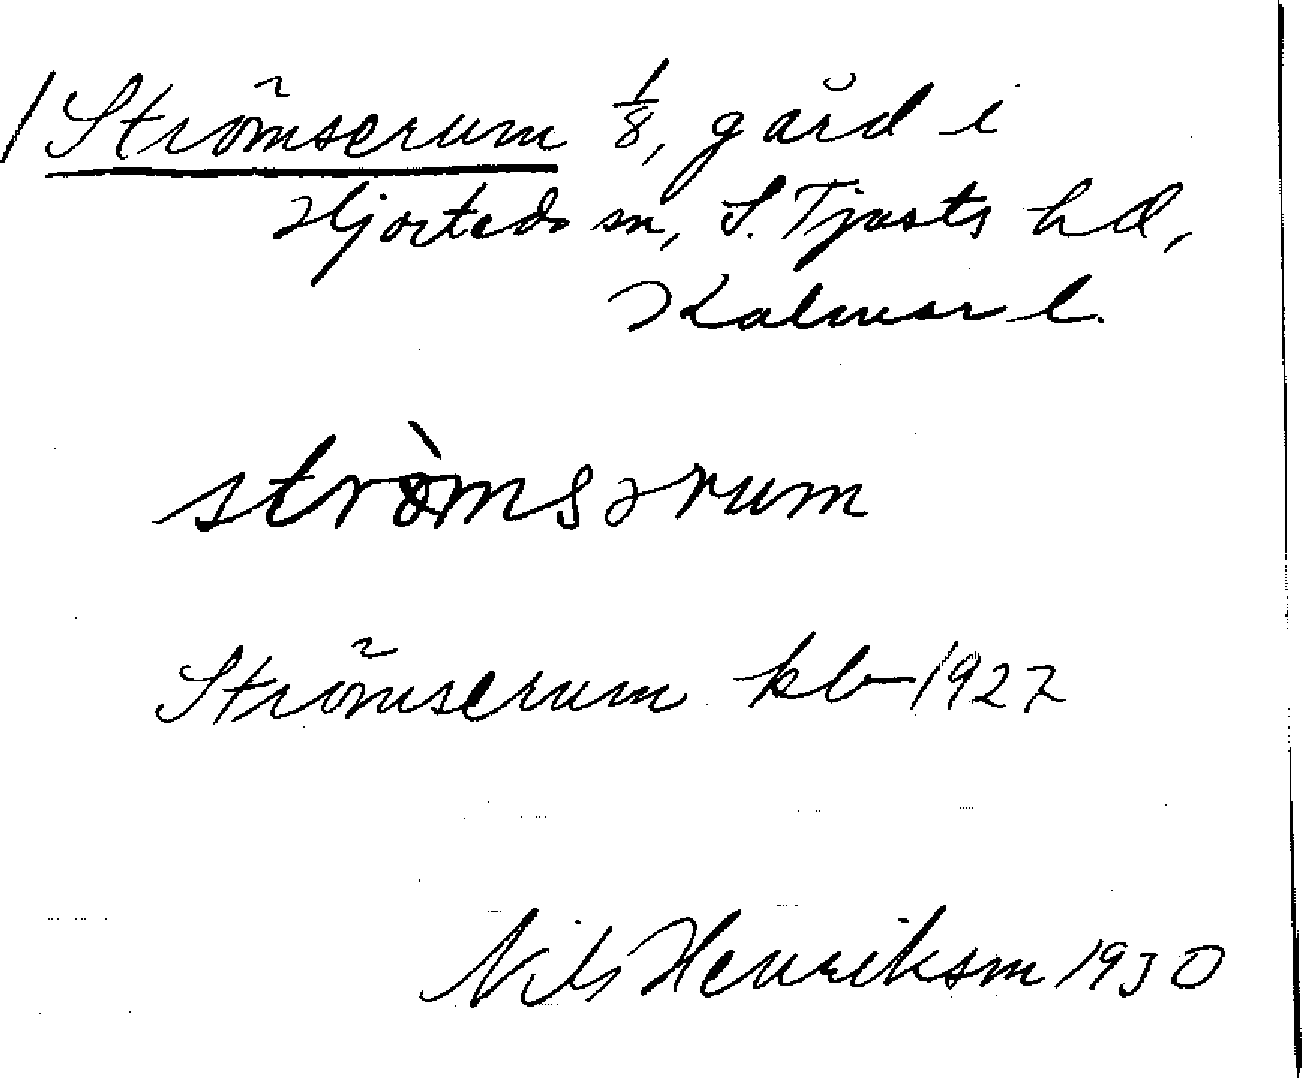 /Strömserum 1/8, gård i
Hjorteds sn, S. Tjusts hd,
Kalmar l.
stròmsərum
Strömserum kb 1927
Nils Henriksm 1930